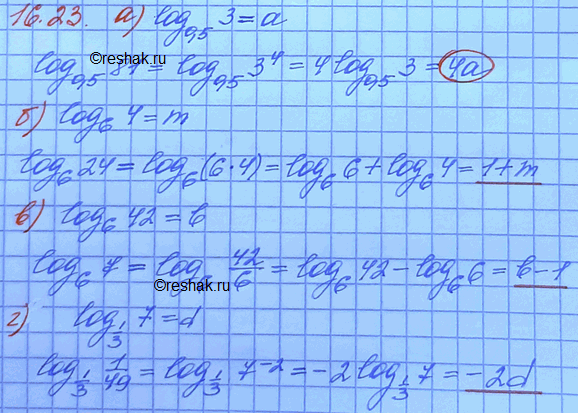 16.23. а) log₀,₅ 3 = a
log₀,₅ 81 = log₀,₅ 3⁴ = 4 log₀,₅ 3 = 4a
©reshak.ru
б) log₆ 4 = m
log₆ 24 = log₆ (6·4) = log₆ 6 + log₆ 4 = 1+m
в) log₆ 42 = b
log₆ 7 = log₆ 42/6 = log₆ 42 - log₆ 6 = b-1
©reshak.ru
г) log_{1/3} 7 = d
log_{1/3} 1/49 = log_{1/3} 7⁻² = -2 log_{1/3} 7 = -2d